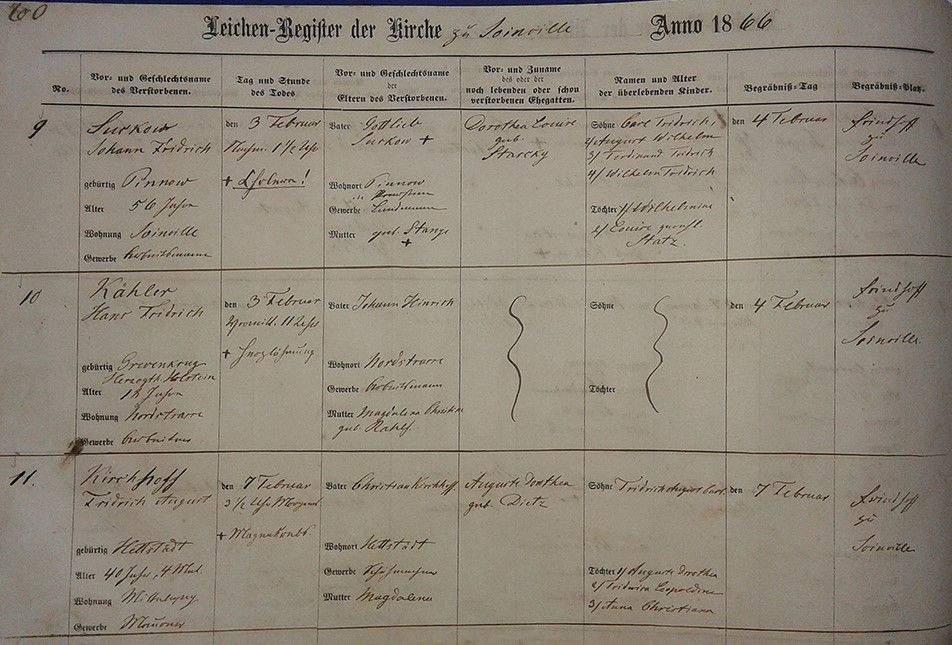 60
Leichen-Register der Kirche zu Joinville Anno 1866
No.
Vor- und Geschlechtsname
des Verstorbenen.
Tag und Stunde
des Todes
Vor- und Geschlechtsname
der
Eltern des Verstorbenen.
Vor- und Zuname
des oder der
noch lebenden oder schon
verstorbenen Ehegatten.
Namen und Alter
der überlebenden Kinder.
Begräbniß-Tag
Begräbniß-Platz.
9
Surkow
Johann Fridrich
gebürtig Pinnow
Alter 56 Jahre
Wohnung Joinville
Gewerbe Arbeitsmann
den 3 Februar
Nachm. 1½ Uhr
+ Cholera!
Vater Gottlieb
Surkow +
Wohnort Pinnow
Gewerbe Landmann
Mutter geb Stange
+
Dorothea Louise
geb
Starcky
Söhne Carl Fridrich
2/ August Wilhelm
3/ Ferdinand Fridrich
4/ Wilhelm Fridrich
Töchter 1/ Wilhelmine
2/ Louise
Statz.
den 4 Februar
Friedhoff
zu
Joinville
10
Kähler
Hans Fridrich
gebürtig Grevenkrug
Herzogth Holstein
Alter Jahre
Wohnung Nordstrasse
Gewerbe Arbeiter
den 3 Februar
Vormitt. 11 Uhr
+
Vater Johann Hinrich
Wohnort Nordstrasse
Gewerbe Arbeitsmann
Mutter Magdalena Christine
geb. Rahlf.
Söhne
Töchter
den 4 Februar
Friedhoff
zu
Joinville.
11.
Kirchhoff
Fridrich August
gebürtig Hettstädt
Alter 40 Jahr, 4 Mon
Wohnung Mittelweg
Gewerbe Maurer
den 7 Februar
3½ Uhr Morgens
+
Vater Christian Kirchhoff.
Wohnort Hettstädt
Gewerbe
Mutter Magdalena
Auguste Dorothea
geb. Dietz
Söhne Fridrich August Carl.
Töchter 1/ Auguste Dorothea
2/ Fridrica Leopoldine
3/ Anna Christiana
den 7 Februar
Friedhoff
zu
Joinville